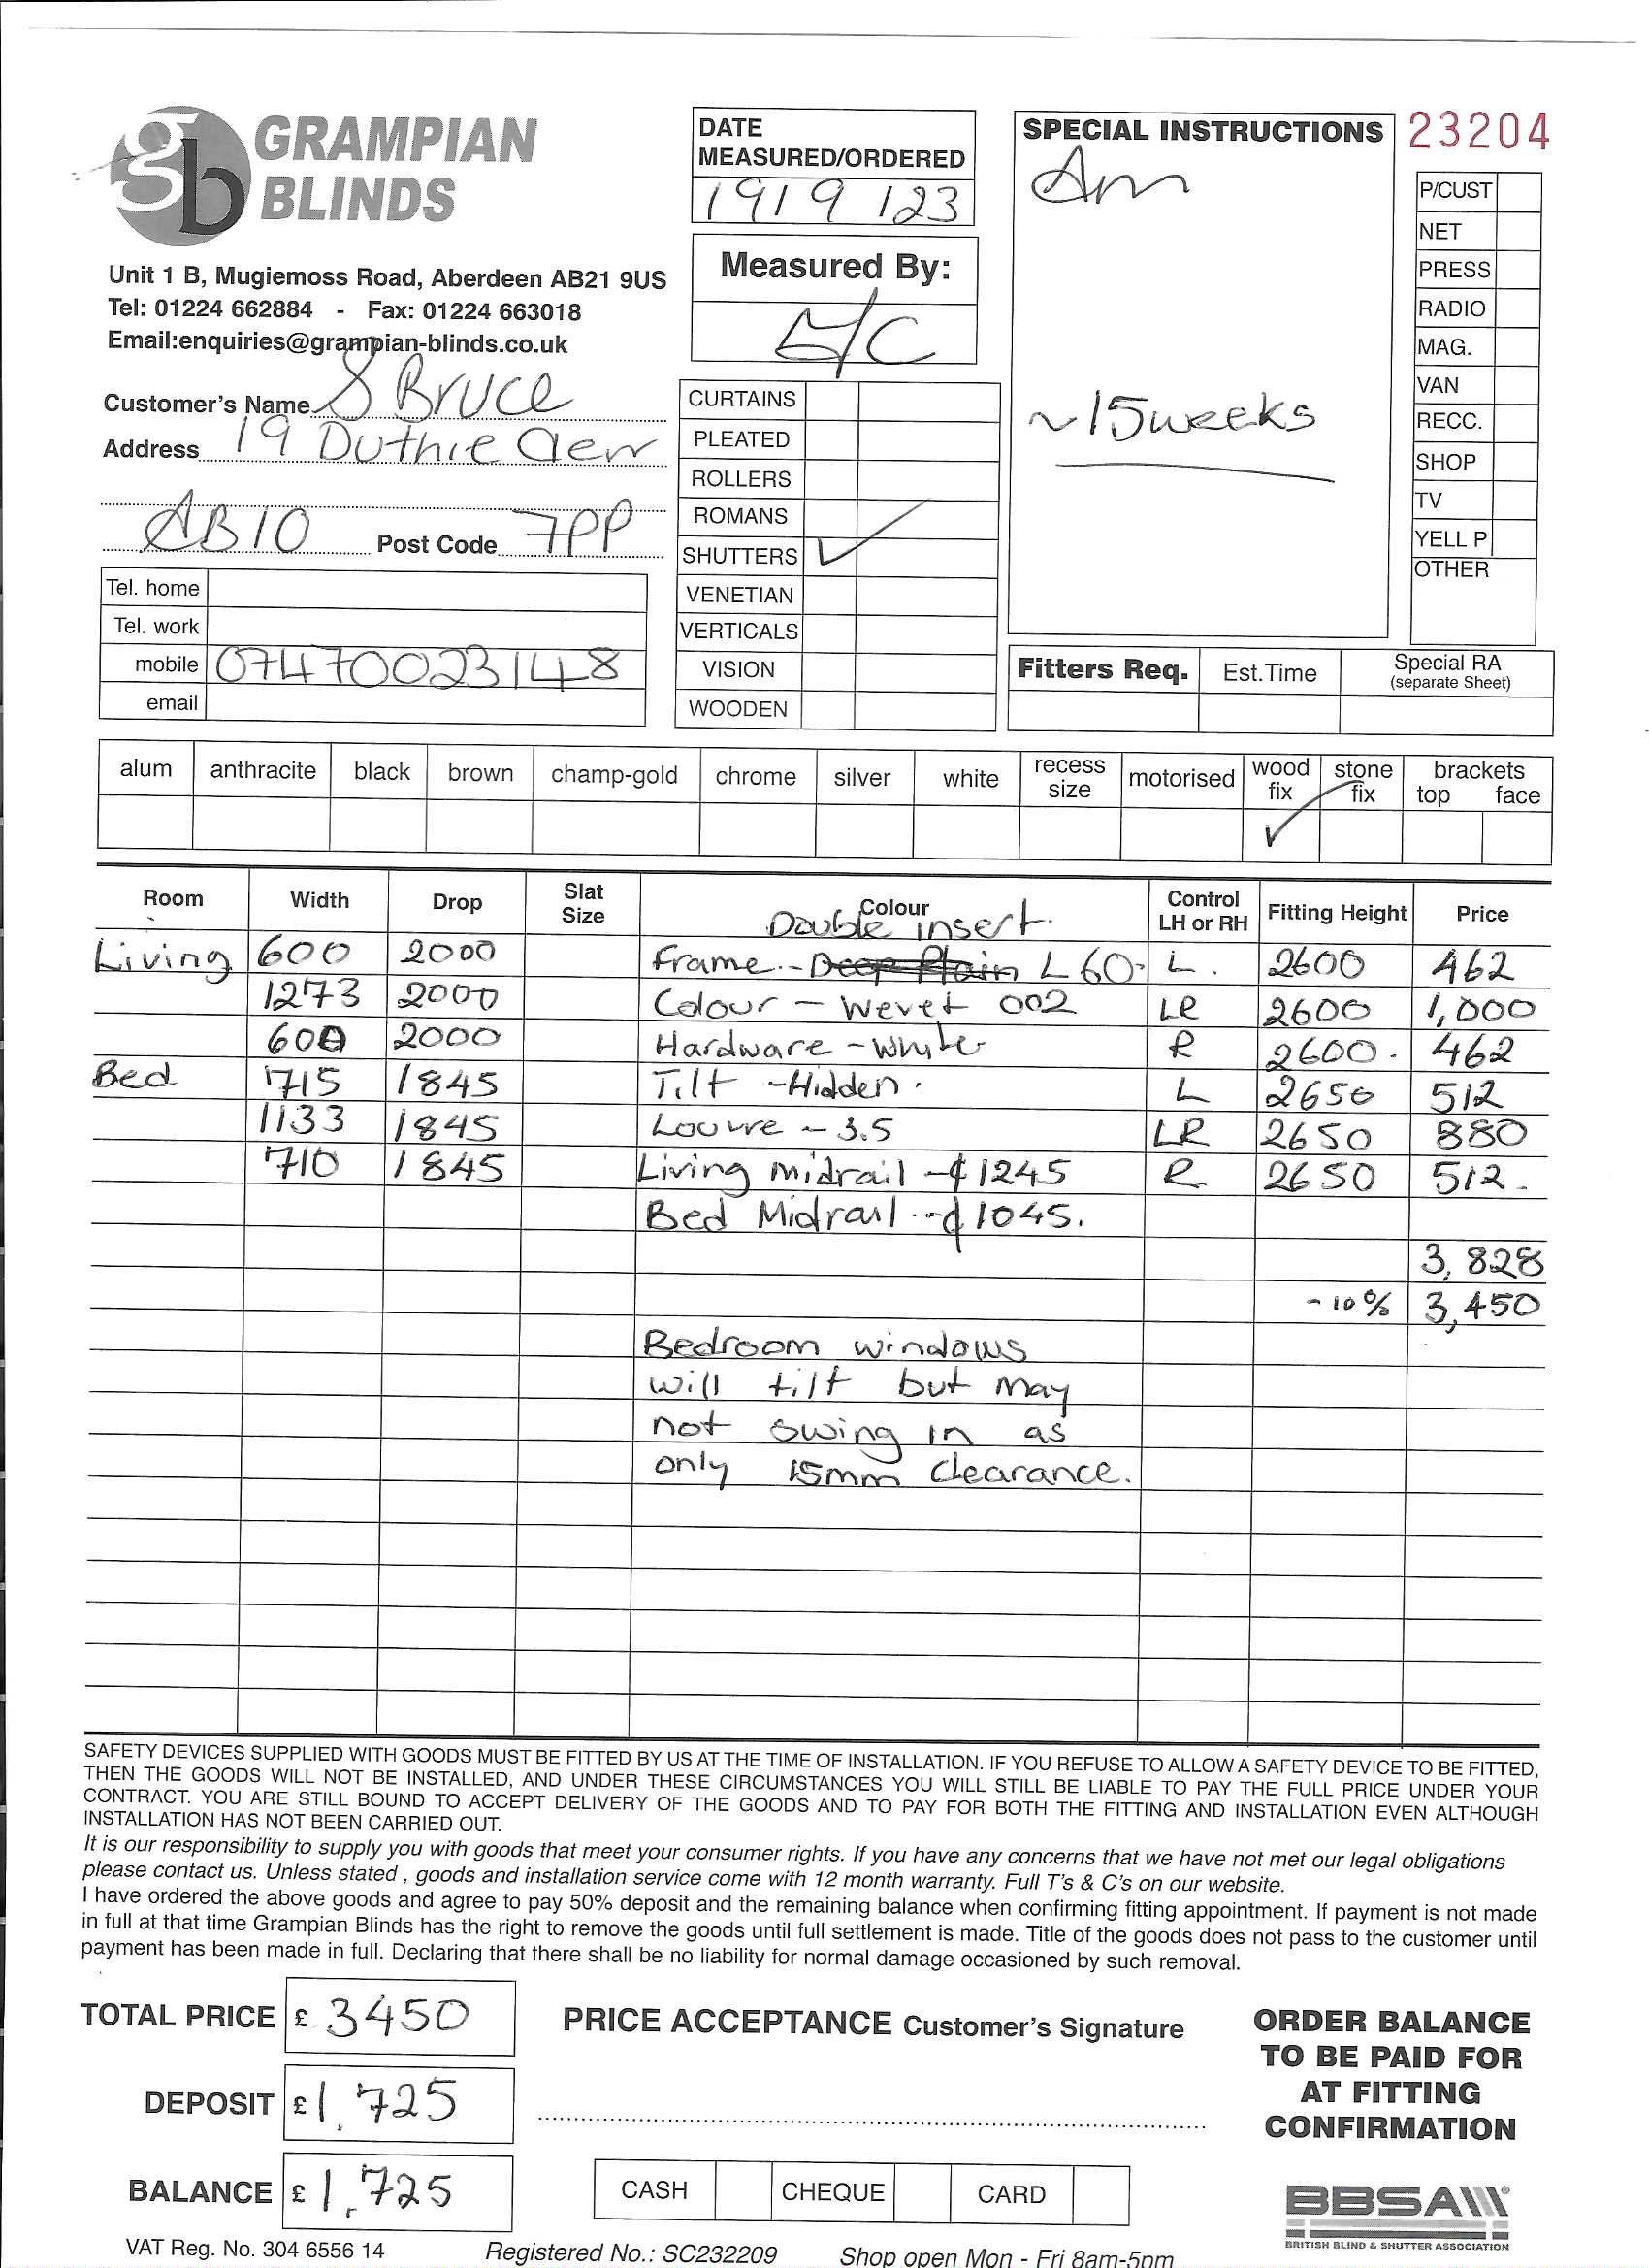 GRAMPIAN
BLINDS
Unit 1 B, Mugiemoss Road, Aberdeen AB21 9US
Tel: 01224 662884 - Fax: 01224 663018
Email:enquiries@grampian-blinds.co.uk
Customer's Name S Bruce
Address 19 Duthie Terr
AB10 Post Code 7PP
Tel. home
Tel. work
mobile 07470023148
email
DATE
MEASURED/ORDERED
19/9/23
Measured By:
CURTAINS
PLEATED
ROLLERS
ROMANS
SHUTTERS ✓
VENETIAN
VERTICALS
VISION
WOODEN
SPECIAL INSTRUCTIONS
Am
~15weeks
23204
P/CUST
NET
PRESS
RADIO
MAG.
VAN
RECC.
SHOP
TV
YELL P
OTHER
Fitters Req. Est.Time Special RA
(separate Sheet)
alum anthracite black brown champ-gold chrome silver white recess size motorised wood fix stone fix brackets top face
✓
Room Width Drop Slat Size Colour Control LH or RH Fitting Height Price
Double insert.
Living 600 2000 Frame - Deep Plain L60 L. 2600 462
1273 2000 Colour - Wevet 002 LR 2600 1,000
600 2000 Hardware - White R 2600. 462
Bed 715 1845 Tilt - Hidden. L 2650 512
1133 1845 Louvre - 3.5 LR 2650 880
710 1845 Living midrail - ¢ 1245 R 2650 512.
Bed Midrail - ¢ 1045.
3,828
-10% 3,450
Bedroom windows
will tilt but may
not swing in as
only 15mm clearance.
SAFETY DEVICES SUPPLIED WITH GOODS MUST BE FITTED BY US AT THE TIME OF INSTALLATION. IF YOU REFUSE TO ALLOW A SAFETY DEVICE TO BE FITTED,
THEN THE GOODS WILL NOT BE INSTALLED, AND UNDER THESE CIRCUMSTANCES YOU WILL STILL BE LIABLE TO PAY THE FULL PRICE UNDER YOUR
CONTRACT. YOU ARE STILL BOUND TO ACCEPT DELIVERY OF THE GOODS AND TO PAY FOR BOTH THE FITTING AND INSTALLATION EVEN ALTHOUGH
INSTALLATION HAS NOT BEEN CARRIED OUT.
It is our responsibility to supply you with goods that meet your consumer rights. If you have any concerns that we have not met our legal obligations
please contact us. Unless stated , goods and installation service come with 12 month warranty. Full T's & C's on our website.
I have ordered the above goods and agree to pay 50% deposit and the remaining balance when confirming fitting appointment. If payment is not made
in full at that time Grampian Blinds has the right to remove the goods until full settlement is made. Title of the goods does not pass to the customer until
payment has been made in full. Declaring that there shall be no liability for normal damage occasioned by such removal.
TOTAL PRICE £ 3450
DEPOSIT £ 1,725
BALANCE £ 1,725
PRICE ACCEPTANCE Customer's Signature
CASH CHEQUE CARD
ORDER BALANCE
TO BE PAID FOR
AT FITTING
CONFIRMATION
BBSA
BRITISH BLIND & SHUTTER ASSOCIATION
VAT Reg. No. 304 6556 14 Registered No.: SC232209 Shop open Mon - Fri 8am-5pm